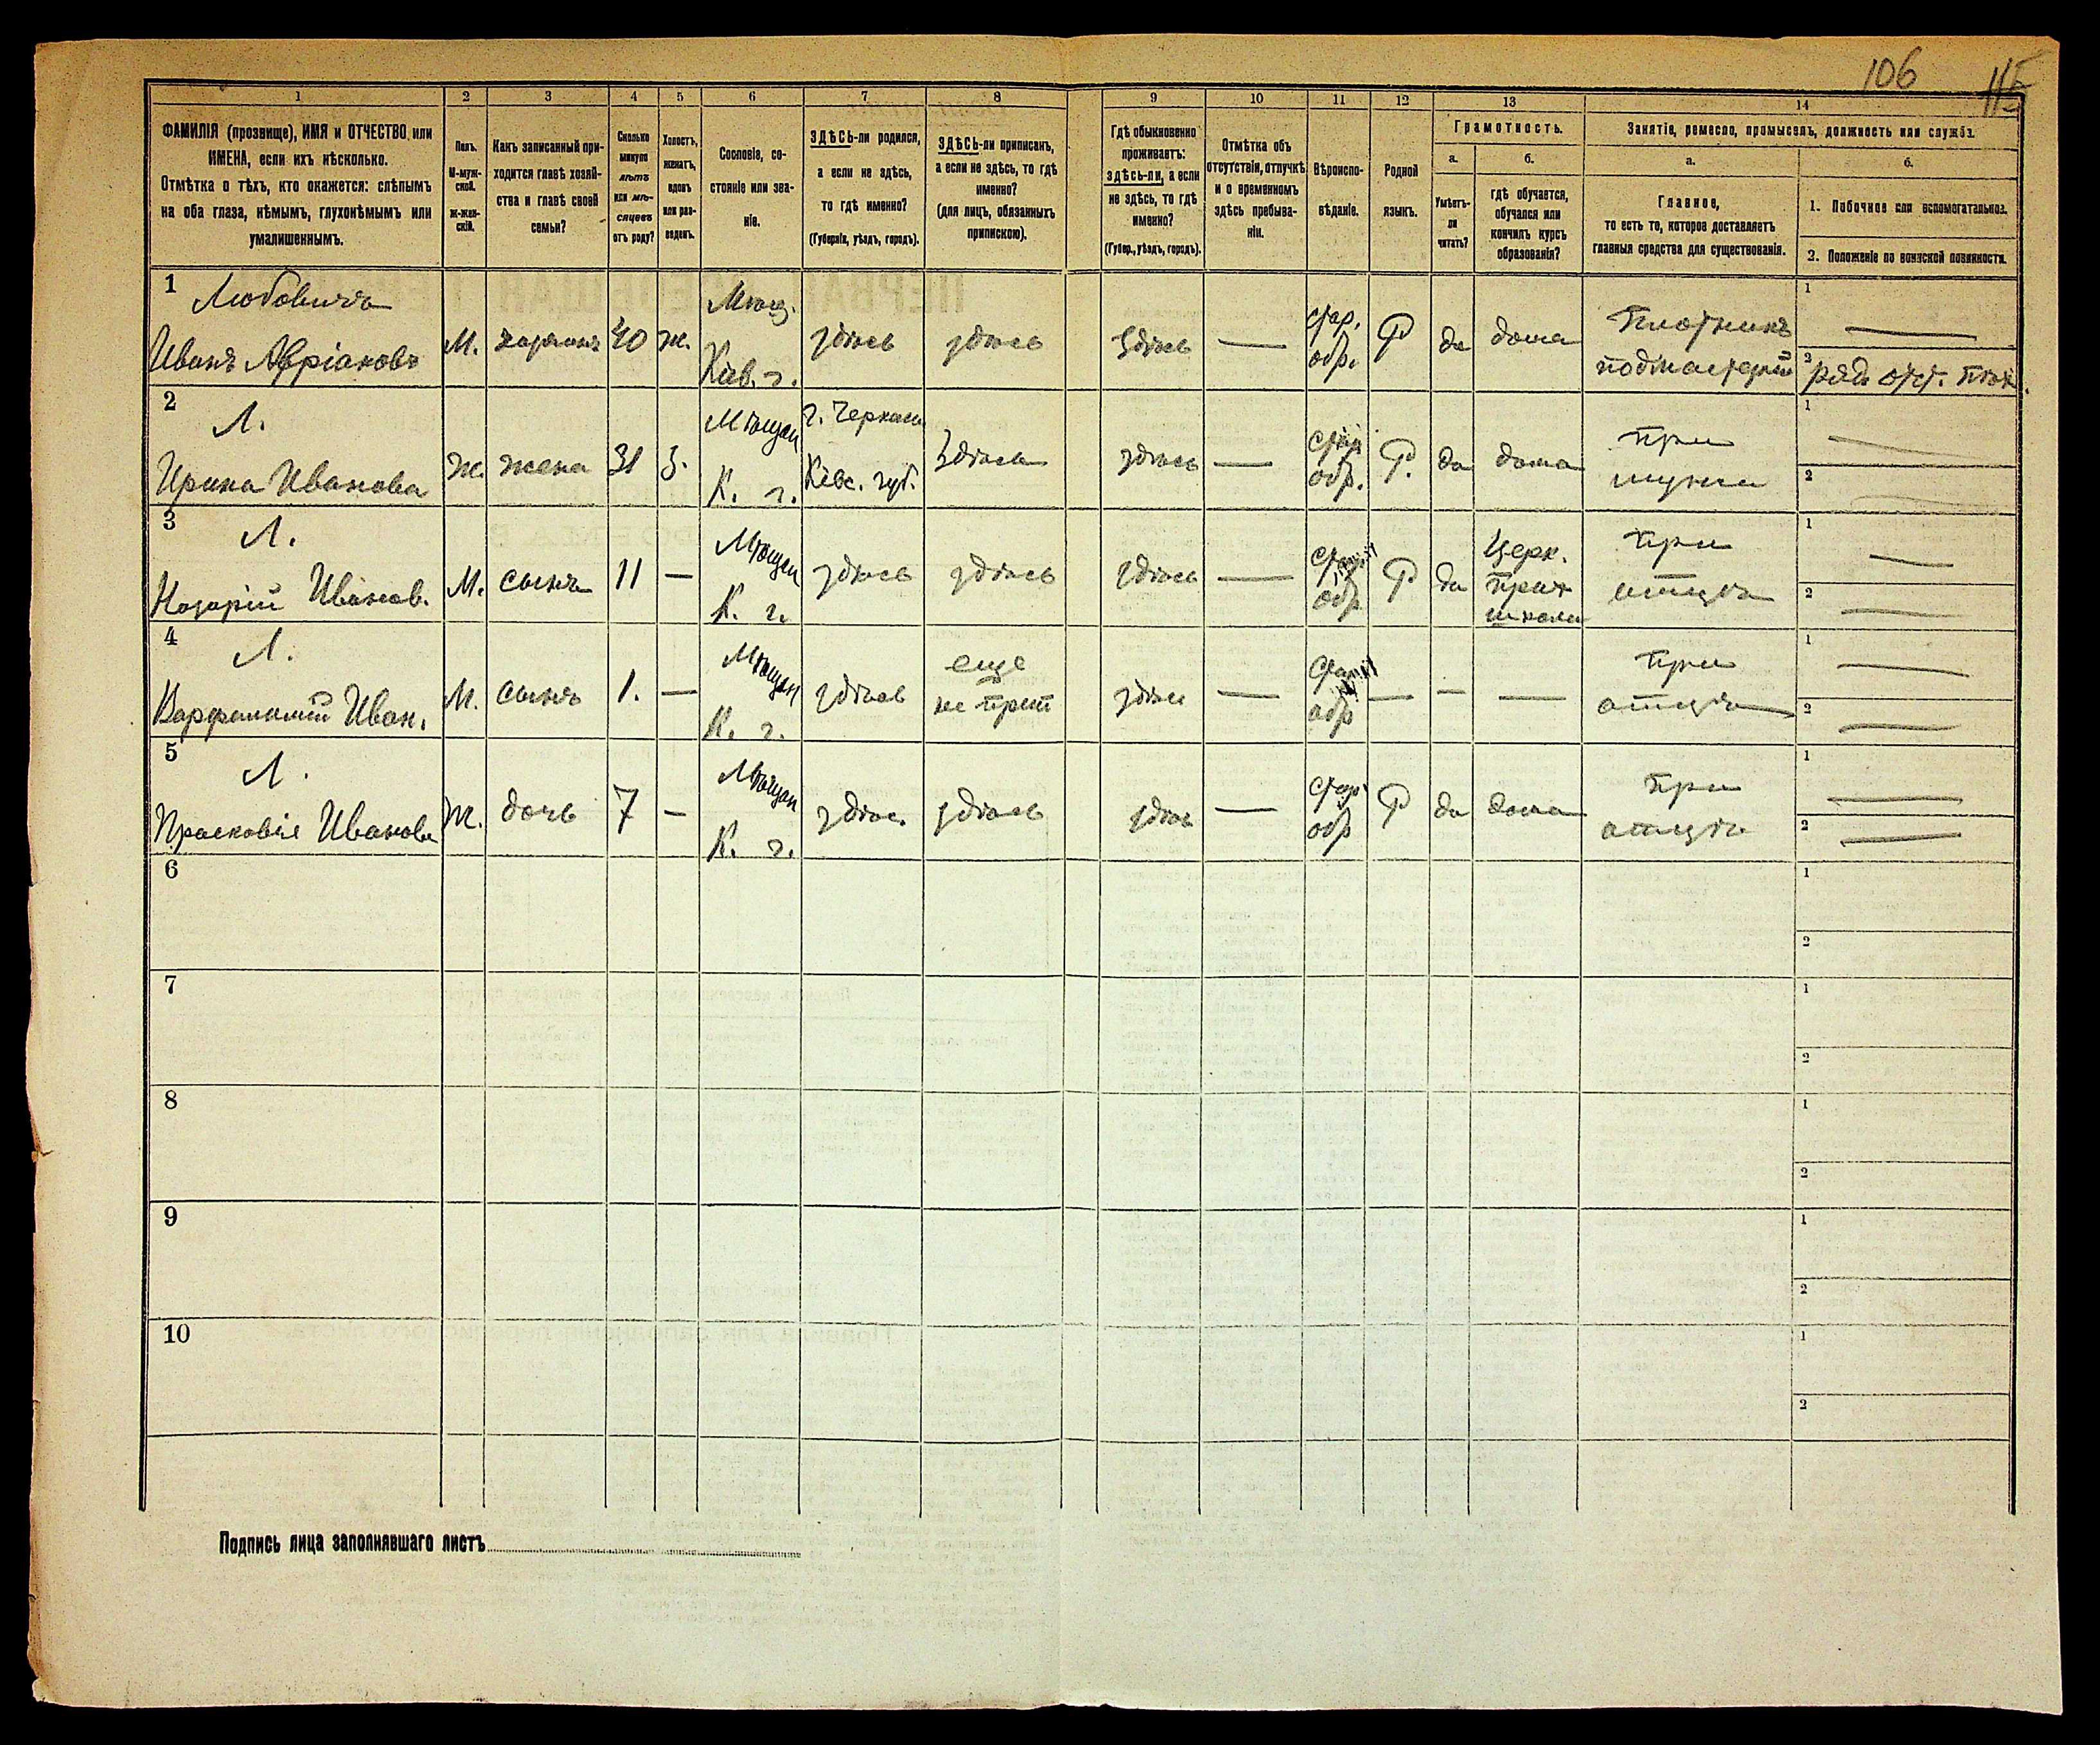 106
115
1
2
3
4
5
6
7
8
9
10
11
12
13
14
ФАМИЛІЯ (прозвище), ИМЯ и ОТЧЕСТВО или
ИМЕНА, если ихъ нѣсколько.
Отмѣтка о тѣхъ, кто окажется: слѣпымъ
на оба глаза, нѣмымъ, глухонѣмымъ или
умалишеннымъ.
Полъ.
М-муж-
ской.
Ж-жен-
скій.
Какъ записанный при-
ходится главѣ хозяй-
ства и главѣ своей
семьи?
Сколько
минуло
лѣтъ
или мѣ-
сяцевъ
отъ роду?
Холостъ,
женатъ,
вдовъ
или раз-
веденъ.
Сословіе, со-
стояніе или зва-
ніе.
ЗДѢСЬ-ли родился,
а если не здѣсь,
то гдѣ именно?
(Губернія, уѣздъ, городъ).
ЗДѢСЬ-ли приписанъ,
а если не здѣсь, то гдѣ
именно?
(для лицъ, обязанныхъ
припискою).
Гдѣ обыкновенно
проживаетъ:
здѣсь-ли, а если
не здѣсь, то гдѣ
именно?
(Губер., уѣздъ, городъ).
Отмѣтка объ
отсутствіи, отлучкѣ
и о временномъ
здѣсь пребыва-
ніи.
Вѣроиспо-
вѣданіе.
Родной
языкъ.
Грамотность.
а.
б.
Умѣетъ-
ли
читать?
гдѣ обучается,
обучался или
кончилъ курсъ
образованія?
Занятіе, ремесло, промыселъ, должность или служба.
а.
б.
Главное,
то есть то, которое доставляетъ
главныя средства для существованія.
1. Побочное или вспомогательное.
2. Положеніе по воинской повинности.
1
Любовичъ
Иванъ Авріановъ
М. хозяинъ 40 ж.
Мѣщ.
Кіев. г.
здѣсь здѣсь здѣсь —
стар.
обр.
Р да дома
Плотникъ
подмастерій
1 —
2 ряд. отст.
2
Л.
Ирина Иванова
Ж. жена 31 з.
Мѣщан
К. г.
г. Черкасы
Кіев. губ.
здѣсь здѣсь —
стар
обр.
Р. да дома
при
мужѣ
1 —
2
3
Л.
Назарій Иванов.
М. сынъ 11 —
Мѣщан
К. г.
здѣсь здѣсь здѣсь —
стар
обр
Р да
Церк.
прих
школа
при
отцѣ
1 —
2 —
4
Л.
Варфоломій Иван.
М. сынъ 1. —
Мѣщан
К. г.
здѣсь
еще
не прип
здѣсь —
стар
обр
— — —
при
отцѣ
1 —
2 —
5
Л.
Прасковія Иванова
Ж. дочь 7 —
Мѣщан
К. г.
здѣсь здѣсь здѣсь —
стар
обр
Р да дома
при
отцѣ
1 —
2 —
6
1
2
7
1
2
8
1
2
9
1
2
10
1
2
Подпись лица заполнявшаго листъ